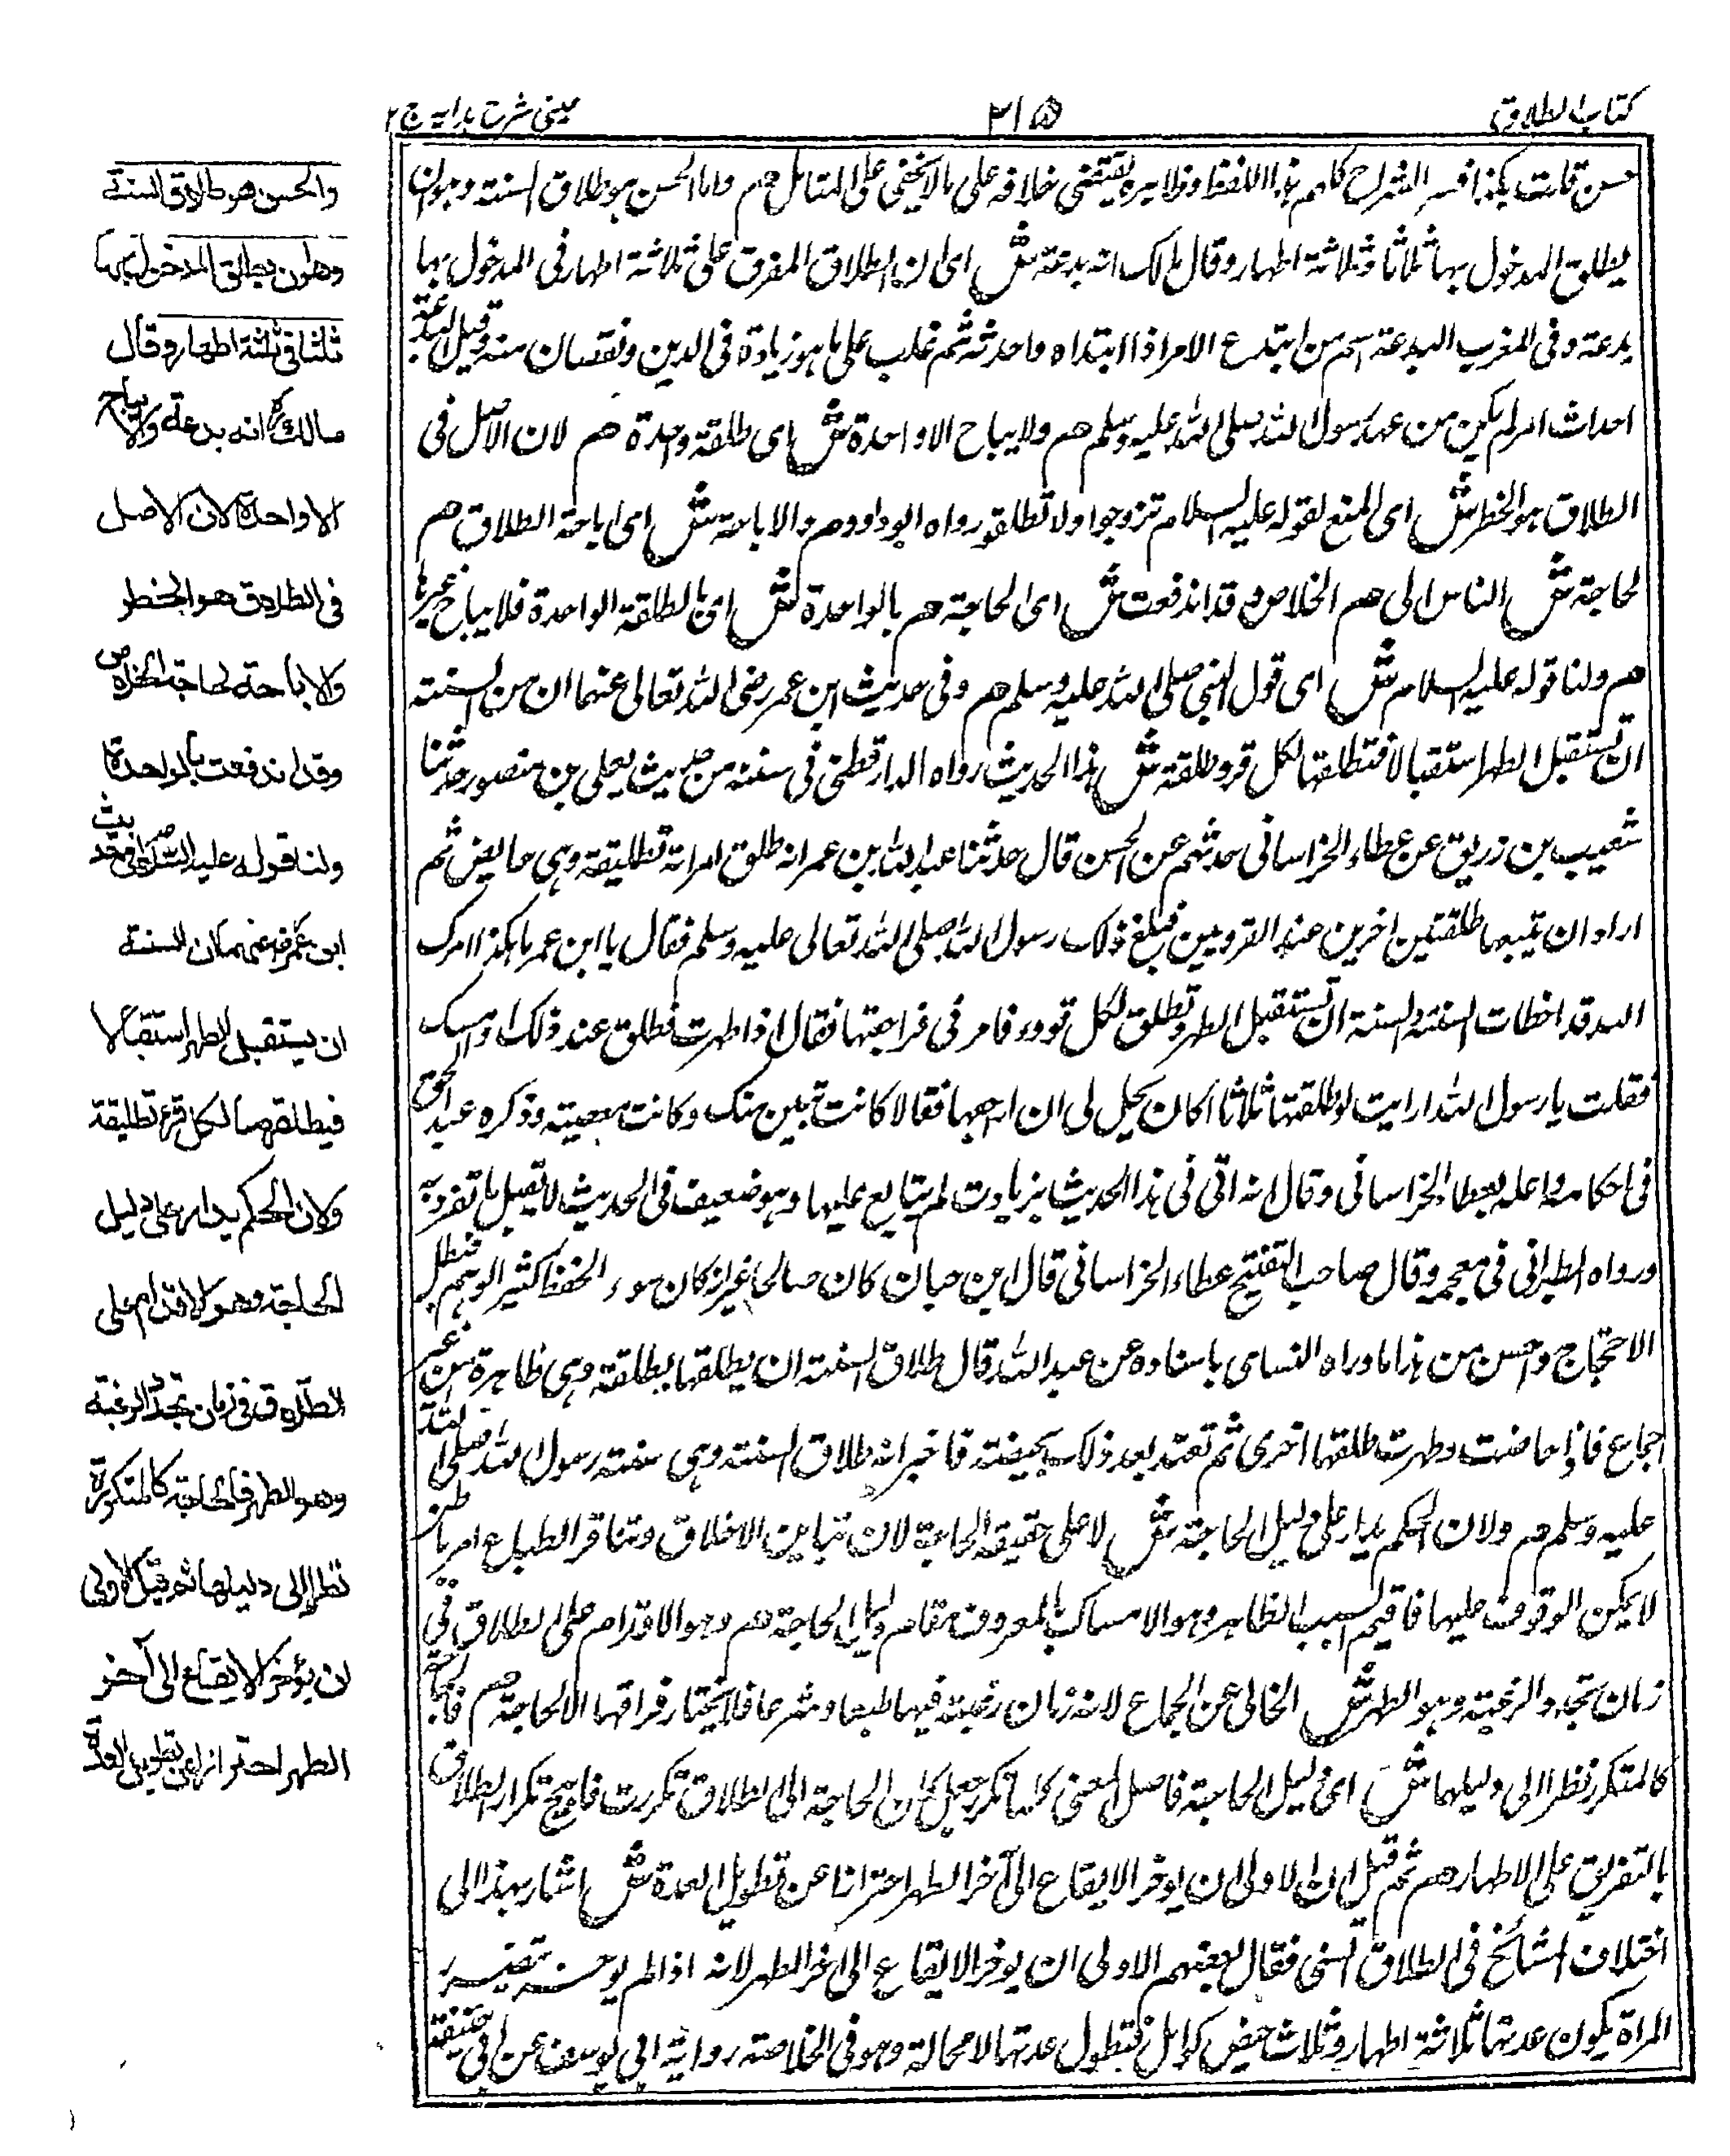 كتاب الطلاق
٢١٥
عينى شرح ہدايہ ج ٢
حسن قلت ہكذا فسر الشراح كلهم ہذا اللفظ وظاہره يقتضى خلافه على ما لا يخفى على المتامل هم واما الحسن ہو طلاق السنته وہو ان
يطلق المدخول بہا ثلاثا فى ثلاثة اطہار وقال مالك انہ بدعة ش اى ان الطلاق المفرق على ثلاثة اطہار فى المدخول بہا
بدعة وفى المغرب البدعة اسم من ابتدع الامر اذا ابتداه واحدثه ثم غلب على ما ہو زيادة فى الدين ونقصان منه وقيل البدعة
احداث امر لم يكن من عہد رسول الله صلى الله عليه وسلم هم ولا يباح الا واحدة ش اى طلقة واحدة هم لان الاصل فى
الطلاق ہو الحظر ش اى المنع لقوله عليه السلام تزوجوا ولا تطلقو رواه ابوداود هم والاباحة ش اى اباحة الطلاق هم
لحاجة ش الناس الى هم الخلاص وقد اندفعت ش اى الحاجة هم بالواحدة ش اى بالطلقة الواحدة فلا يباح غيرہا
هم ولنا قوله عليه السلام ش اى قول النبى صلى الله عليه وسلم هم وفى حديث ابن عمر رضى الله تعالى عنهما ان من السنته
ان تستقبل الطہر استقبالا فتطلقہا لكل قرء طلقة ش ہذا الحديث رواه الدارقطنى فى سننه من حديث يعلى بن منصور حدثنا
شعيب بن زريق عن عطاء الخراسانى حدثهم عن الحسن قال حدثنا عبدالله بن عمر انه طلق امراته تطليقة وہى حايض ثم
اراد ان يتبعہا طلقتين اخرين عند القرويين فبلغ ذلك رسول الله صلى الله تعالى عليه وسلم فقال يا ابن عمر ما ہكذا امرك
الله قد اخطات السنته والسنة ان تستقبل الطہر وتطلق لكل قروء فامرنى فراجعتہا فقال اذا طہرت فطلق عند ذلك او امسك
فقلت يا رسول الله ارايت لو طلقتہا ثلاثا اكان يحل لى ان ارجعہا فقال لا كانت تبين منك وكانت معصيته وذكره عبد الحق
فى احكامه واعله بعطاء الخراسانى وقال انه اتى فى ہذا الحديث بزيادت لم يتابع عليہا وہو ضعيف فى الحديث لا يقبل ما تفرد بہ
ورواه الطبرانى فى معجمه وقال صاحب التنقيح عطاء الخراسانى قال ابن حبان كان صالحا غير انه كان سوء الحفظ كثير الوہم فبطل
الاحتجاج واحسن من ہذا ما رواه النساى باسناده عن عبد الله قال طلاق السنته ان يطلقہا بطلقة وہى طاہرة من غير
جماع فاذا حاضت وطہرت طلقہا اخرى ثم تعتد بعد ذلك بحيضته فاخبر انه طلاق السنته وہى سنته رسول الله صلى الله
عليه وسلم هم ولان الحكم يدار على دليل الحاجة ش لا على حقيقة الحاجة لان تباين الاخلاق وتنافر الطباع امر باطن
لا يمكن الوقوف عليہا فاقيم السبب الظاہر وہو الامساك بالمعروف مقام دليل الحاجة هم وہو الاقدام على الطلاق فى
زمان تجدد الرغبته وہو الطہر ش الخالى عن الجماع لانه زمان رغبته فيہا طبعا وشرعا فلا يختار فراقہا الا لحاجة هم فالحاجة
كالمتكرر نظرا الى دليلہا ش اى دليل الحاجة فاصل المعنى كلما تكرر جعل كان الحاجة الى الطلاق تكررت فابيح تكرار الطلاق
بالتفريق على الاطہار هم ثم قيل ان الاولى ان يوخر الايقاع الى آخر الطہر احترازا عن تطويل العدة ش اشار بہذا الى
اختلاف المشائخ فى الطلاق السنى فقال بعضہم الاولى ان يوخر الايقاع الى اخر الطہر لانه اذا لم يوخر
المراة يكون عدتہا ثلاثة اطہار وثلاث حيض كوامل فتطول عدتہا لا محالة وہو فى الخلاصته رواية ابى يوسف عن ابى حنيفة
والحسن هو طلاق السنة
وهو ان يطلق المدخول بها
ثلثا فى ثلثة اطهار وقال
مالكؒ انه بدعة ولا يباح
الا واحدة لان الاصل
فى الطلاق هو الحظر
والاباحة لحاجة الخلاص
وقد اندفعت بالواحدة
ولنا قوله عليه السلام فى حديث
ابن عمرؓ ان من السنة
ان يستقبل الطهر استقبالا
فيطلقها لكل قرء تطليقة
ولان الحكم يدار على دليل
الحاجة وهو الاقدام على
الطلاق فى زمان تجدد الرغبة
وهو الطهر فالحاجة كالمتكررة
نظرا الى دليلها ثم قيل الاولى
ان يؤخر الايقاع الى آخر
الطهر احترازا عن تطويل العدة